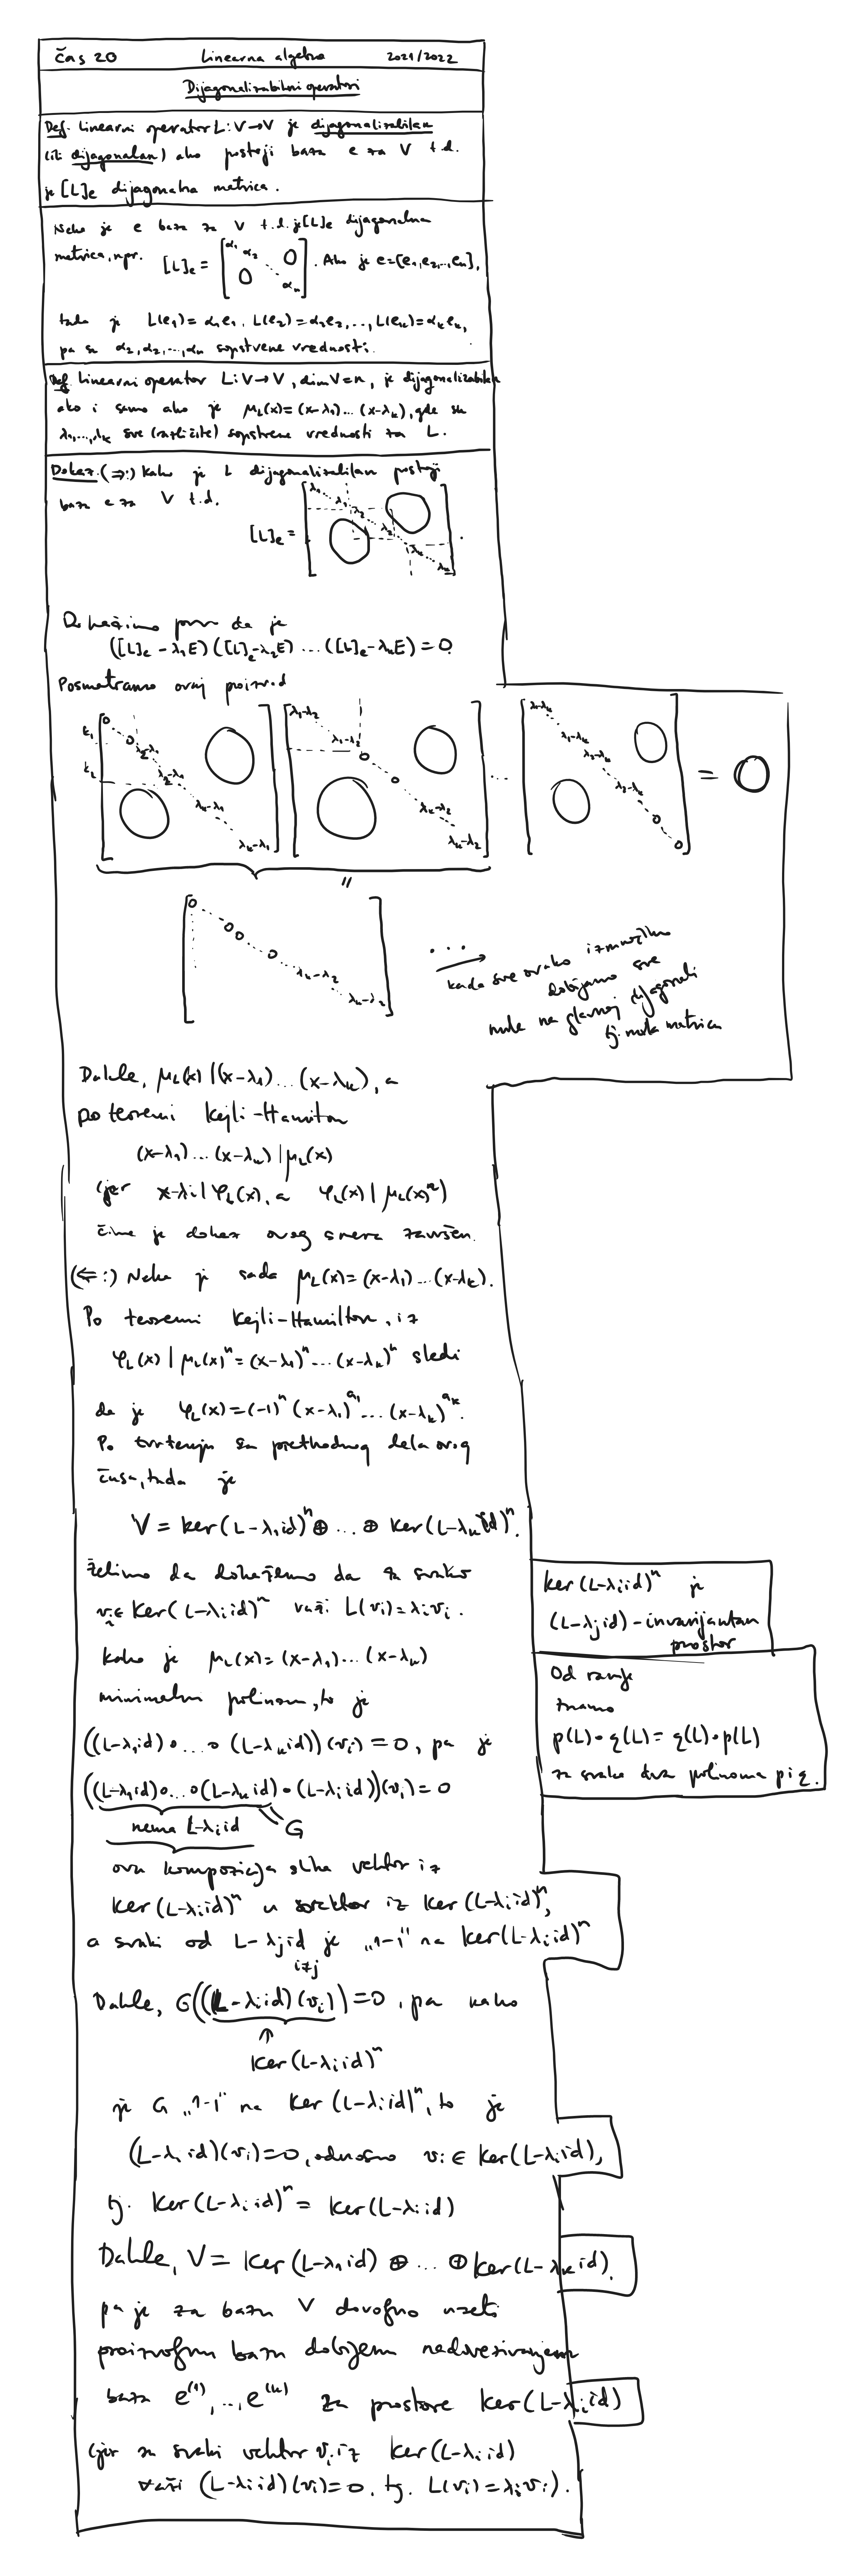 čas 20 Linearna algebra 2021/2022
Dijagonalizabilni operatori
Def. Linearni operator L:V→V je dijagonalizabilan
(ili dijagonalan) ako postoji baza e za V t.d.
je [L]e dijagonalna matrica.
Neka je e baza za V t.d. je [L]e dijagonalna
matrica, npr. [L]e = [α₁ α₂ 0 0 ⋱ αn]. Ako je e=[e₁,e₂,...,en],
tada je L(e₁)=α₁e₁, L(e₂)=α₂e₂, ..., L(en)=αnen,
pa su α₂,α₂,...,αn sopstvene vrednosti.
Def. Linearni operator L:V→V, dimV=n, je dijagonalizabilan
ako i samo ako je μL(x)=(x-λ₁)...(x-λk), gde su
λ₁,...,λk sve (različite) sopstvene vrednosti za L.
Dokaz. (⇒:) Kako je L dijagonalizabilan postoji
baza e za V t.d.
[L]e = [λ₁ ⋱ λ₁ λ₂ ⋱ λ₂ ⋱ λk ⋱ λk].
Dokažimo prvo da je
([L]e-λ₁E)([L]e-λ₂E)...([L]e-λkE)=0.
Posmatramo ovaj proizvod
k₁ k₂ [0 ⋱ 0 λ₂-λ₁ ⋱ λ₂-λ₁ λk-λ₁ ⋱ λk-λ₁] [λ₁-λ₂ ⋱ λ₁-λ₂ 0 ⋱ 0 λk-λ₂ ⋱ λk-λ₂] ... [λ₁-λk ⋱ λ₁-λk λ₂-λk ⋱ λ₂-λk 0 ⋱ 0] = 0
"
[0 ⋱ 0 0 ⋱ 0 ⋱ λk-λ₂ ⋱ λk-λ₂]
... →
kada sve ovako izmnožimo
dobijamo sve
nule na glavnoj dijagonali
tj. nula matricu
Dakle, μL(x)|(x-λ₁)...(x-λk), a
po teoremi Kejli-Hamilton
(x-λ₁)...(x-λk)|μL(x)
(jer x-λi|φL(x), a φL(x)|μL(x)ⁿ)
čime je dokaz ovog smera završen.
(⇐:) Neka je sada μL(x)=(x-λ₁)...(x-λk).
Po teoremi Kejli-Hamilton, iz
φL(x)|μL(x)ⁿ=(x-λ₁)ⁿ...(x-λk)ⁿ sledi
da je φL(x)=(-1)ⁿ(x-λ₁)^a₁...(x-λk)^ak.
Po tvrđenju sa prethodnog dela ovog
časa, tada je
V = ker(L-λ₁id)ⁿ⊕...⊕ker(L-λkid)ⁿ.
Želimo da dokažemo da za svako
vi∈Ker(L-λiid)ⁿ važi L(vi)=λivi.
ker(L-λiid)ⁿ je
(L-λjid)-invarijantan
prostor
kako je μL(x)=(x-λ₁)...(x-λk)
minimalni polinom, to je
((L-λ₁id)∘...∘(L-λkid))(vi)=0, pa je
((L-λ₁id)∘...∘(L-λkid)∘(L-λiid))(vi)=0
nema L-λiid G
Od ranije
znamo
p(L)∘q(L)=q(L)∘p(L)
za svaka dva polinoma p i q.
ova kompozicija slika vektor iz
Ker(L-λiid)ⁿ u vektor iz Ker(L-λiid)ⁿ,
a svaki od L-λjid je „1-1" na Ker(L-λiid)ⁿ
i≠j
Dakle, G((L-λiid)(vi))=0, pa kako
↑
Ker(L-λiid)ⁿ
je G „1-1" na Ker(L-λiid)ⁿ, to je
(L-λiid)(vi)=0, odnosno vi∈Ker(L-λiid),
tj. Ker(L-λiid)ⁿ=Ker(L-λiid)
Dakle, V=Ker(L-λ₁id)⊕...⊕ker(L-λkid).
pa je za bazu V dovoljno uzeti
proizvoljnu bazu dobijenu nadovezivanjem
baza e⁽¹⁾,...,e⁽ᵏ⁾ za prostore Ker(L-λiid)
(jer za svaki vektor vi iz Ker(L-λiid)
važi (L-λiid)(vi)=0, tj. L(vi)=λivi).